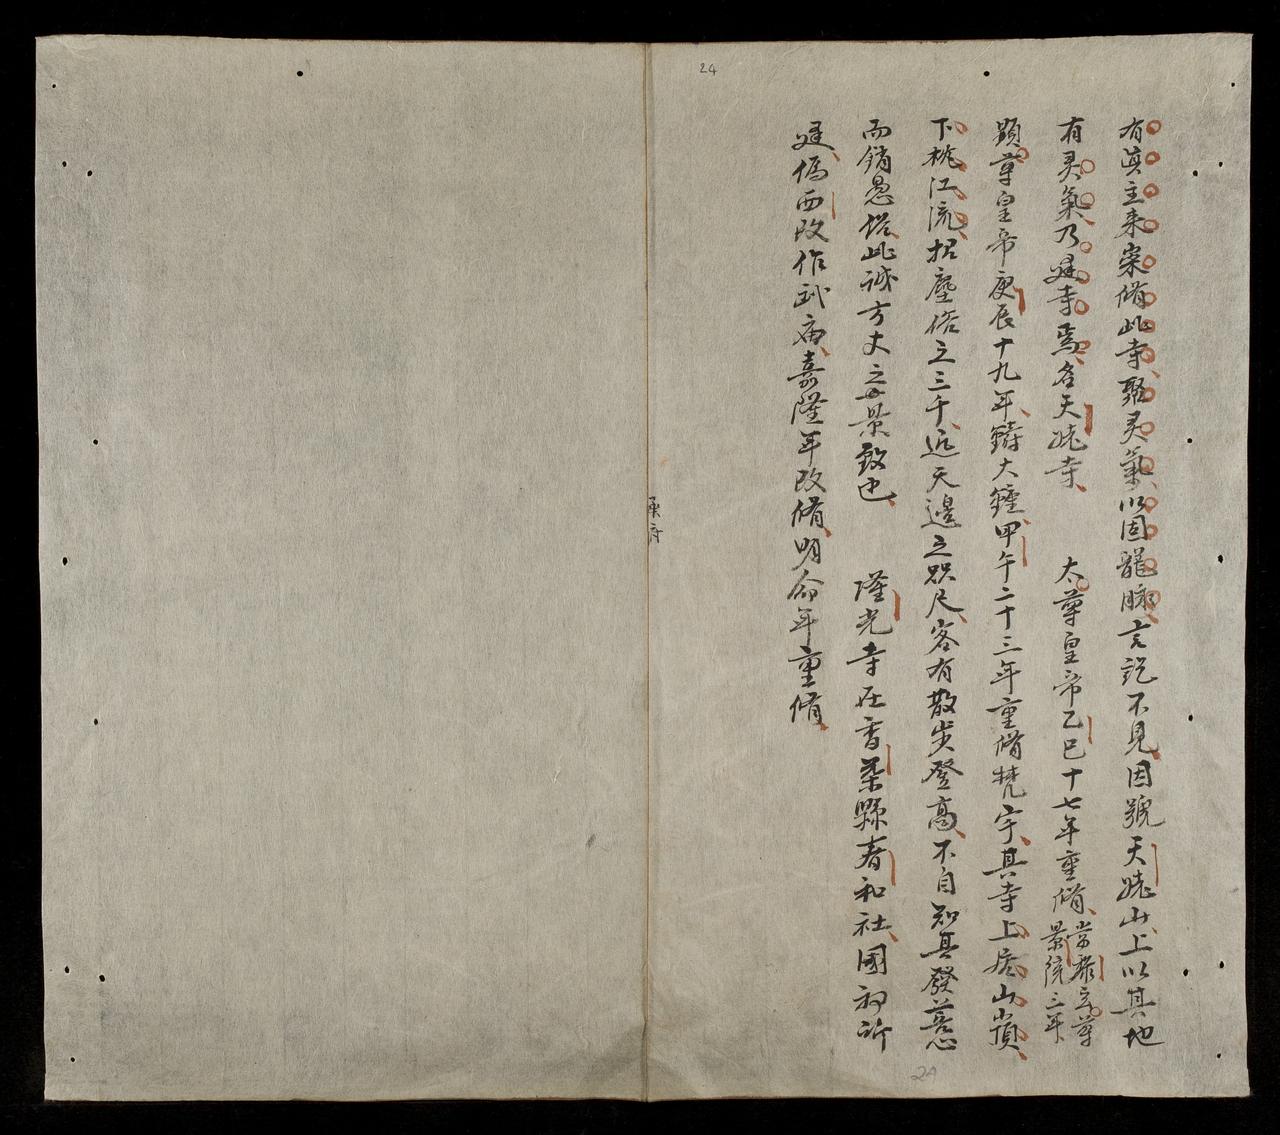 24
有眞主来崇脩此寺聚灵氣以固龍脉言訖不見因號天姥山上以其地
有灵氣乃建寺焉名天姥寺 太尊皇帝乙巳十七年重脩常黎玄尊
景統三年
顕尊皇帝庚辰十九年鑄大鐘甲午二十三年重脩梵宇其寺上居山嵿
下桃江流招塵俗之三千近天邊之咫尺客有散步登高不自知其發善心
而銷愚俗此誠方丈之景致也 隆光寺在香茶縣春和社國初所
建僞西改作武庙嘉隆年改脩明命年重脩
承府
24